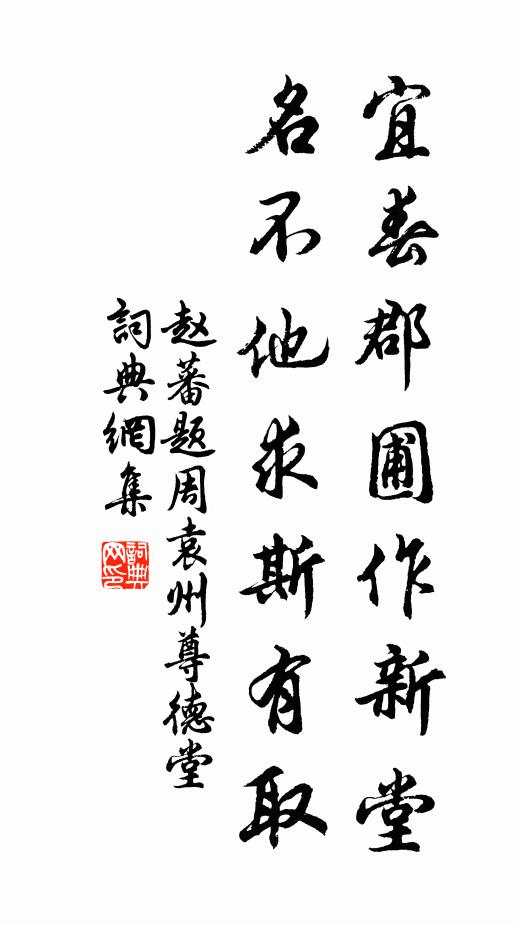 宜春郡圃作新堂
名不他求斯有取
赵蕃题周袁州尊德堂
詞典網集
詞典
网印